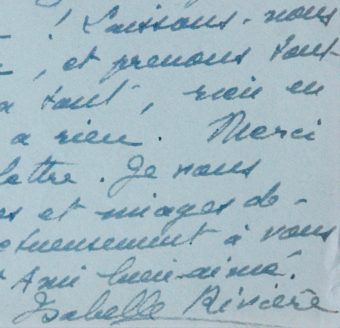 ! Laissons-nous
, et prenons tout
a tout, rien en
a rien. Merci
lettre. Je vous
es et nuages de-
ctueusement à vous
Ami bien-aimé.
Isabelle Rivière